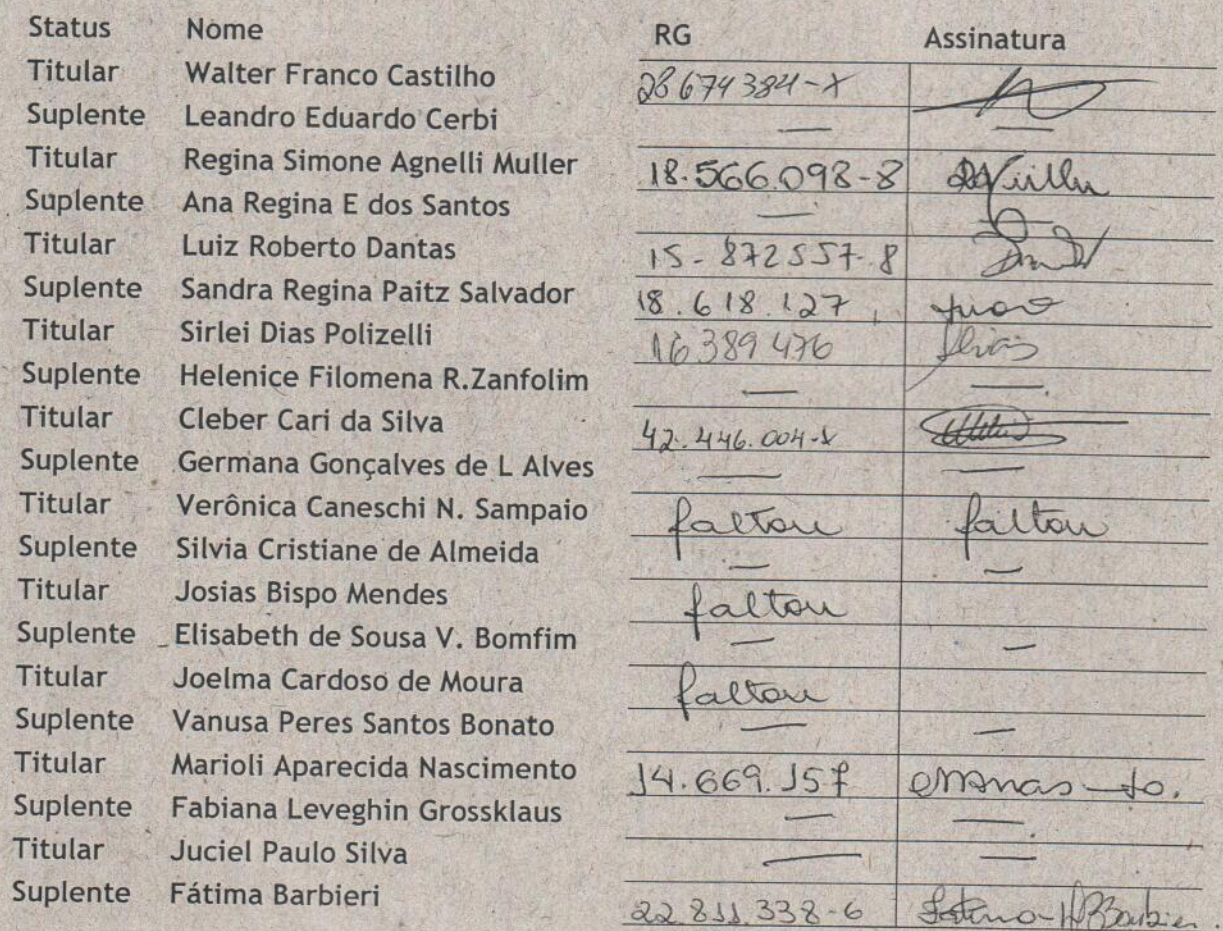 Status Nome RG Assinatura
Titular Walter Franco Castilho 28674384-X
Suplente Leandro Eduardo Cerbi — —
Titular Regina Simone Agnelli Muller 18.566.098-8
Suplente Ana Regina E dos Santos —
Titular Luiz Roberto Dantas 15-872557-8
Suplente Sandra Regina Paitz Salvador 18.618.127
Titular Sirlei Dias Polizelli 16389476
Suplente Helenice Filomena R.Zanfolim — —
Titular Cleber Cari da Silva
Suplente Germana Gonçalves de L Alves — —
Titular Verônica Caneschi N. Sampaio faltou faltou
Suplente Silvia Cristiane de Almeida — —
Titular Josias Bispo Mendes faltou
Suplente Elisabeth de Sousa V. Bomfim — —
Titular Joelma Cardoso de Moura faltou
Suplente Vanusa Peres Santos Bonato — —
Titular Marioli Aparecida Nascimento 14.669.157
Suplente Fabiana Leveghin Grossklaus — —
Titular Juciel Paulo Silva — —
Suplente Fátima Barbieri 22.811.338-6